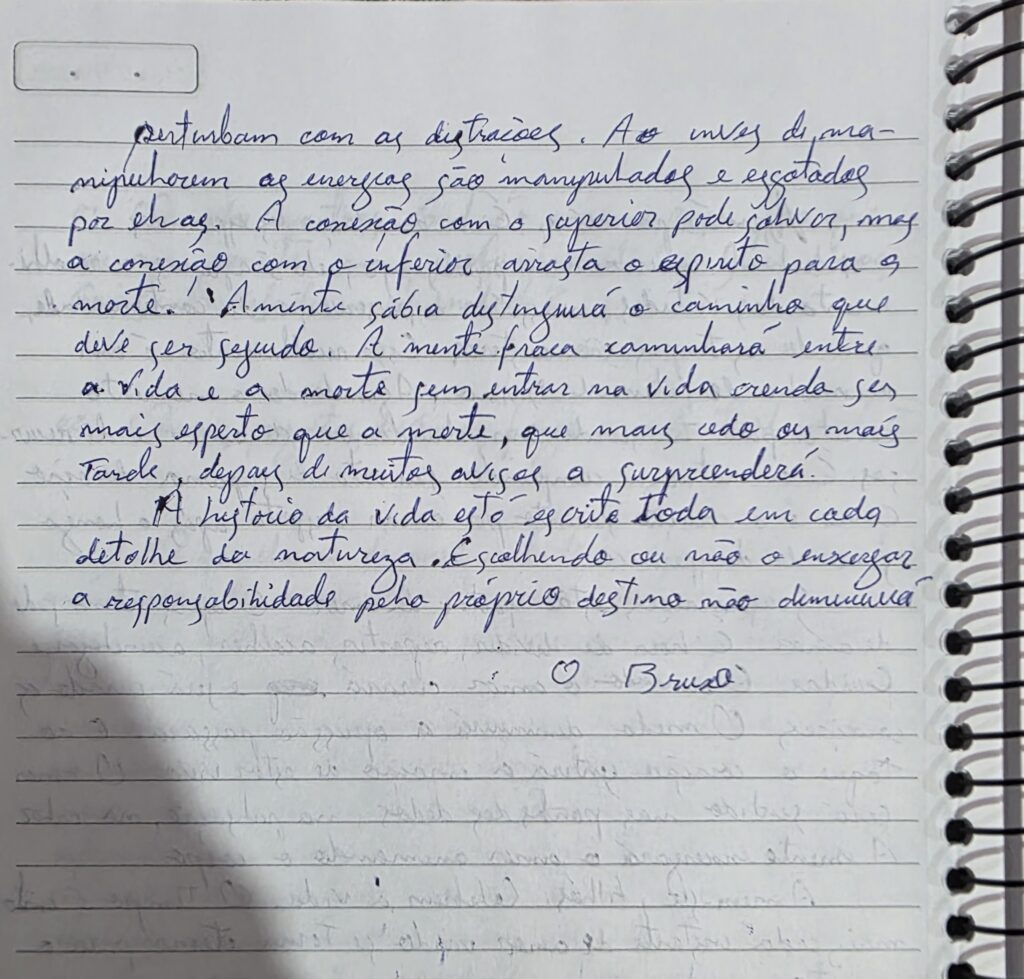 perturbam com as distrações. Ao invés de ma-
nipularem as energias são manipulados e esgotados
por elas. A conexão com o superior pode salvar, mas
a conexão com o inferior arrasta o espírito para a
morte. A mente sábia distinguirá o caminho que
deve ser seguido. A mente fraca caminhará entre
a vida e a morte sem entrar na vida crendo ser
mais esperto que a morte, que mais cedo ou mais
Tarde, depois de muitos avisos a surpreenderá.
A história da vida está escrita toda em cada
detalhe da natureza. Escolhendo ou não o enxergar
a responsabilidade pelo próprio destino não diminuirá
O Bruxo